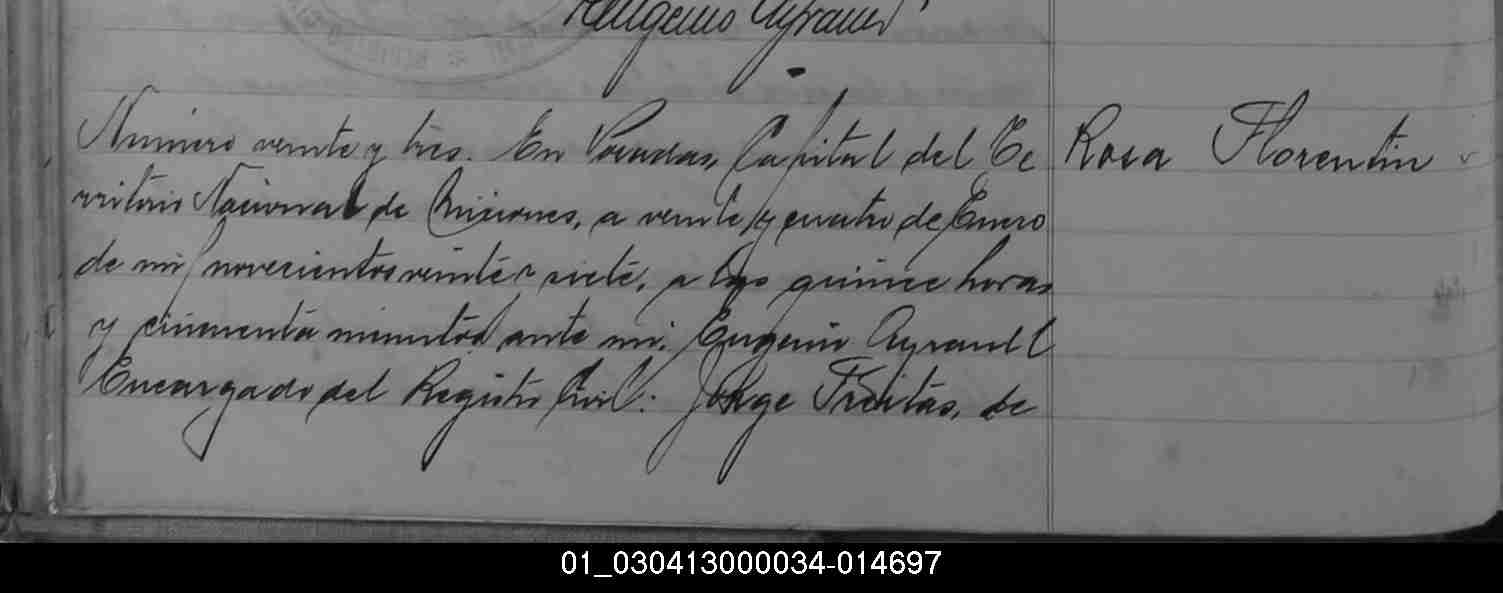 Eugenio Ayrault
Número veinte y tres. En Posadas, Capital del Te
rritorio Nacional de Misiones, a veinte y cuatro de Enero
de mil novecientos veinte y siete, a las quince horas
y cincuenta minutos ante mi: Eugenio Ayrault
Encargado del Registro Civil: Jorge Freitas, de
Rosa Florentin
01_030413000034-014697